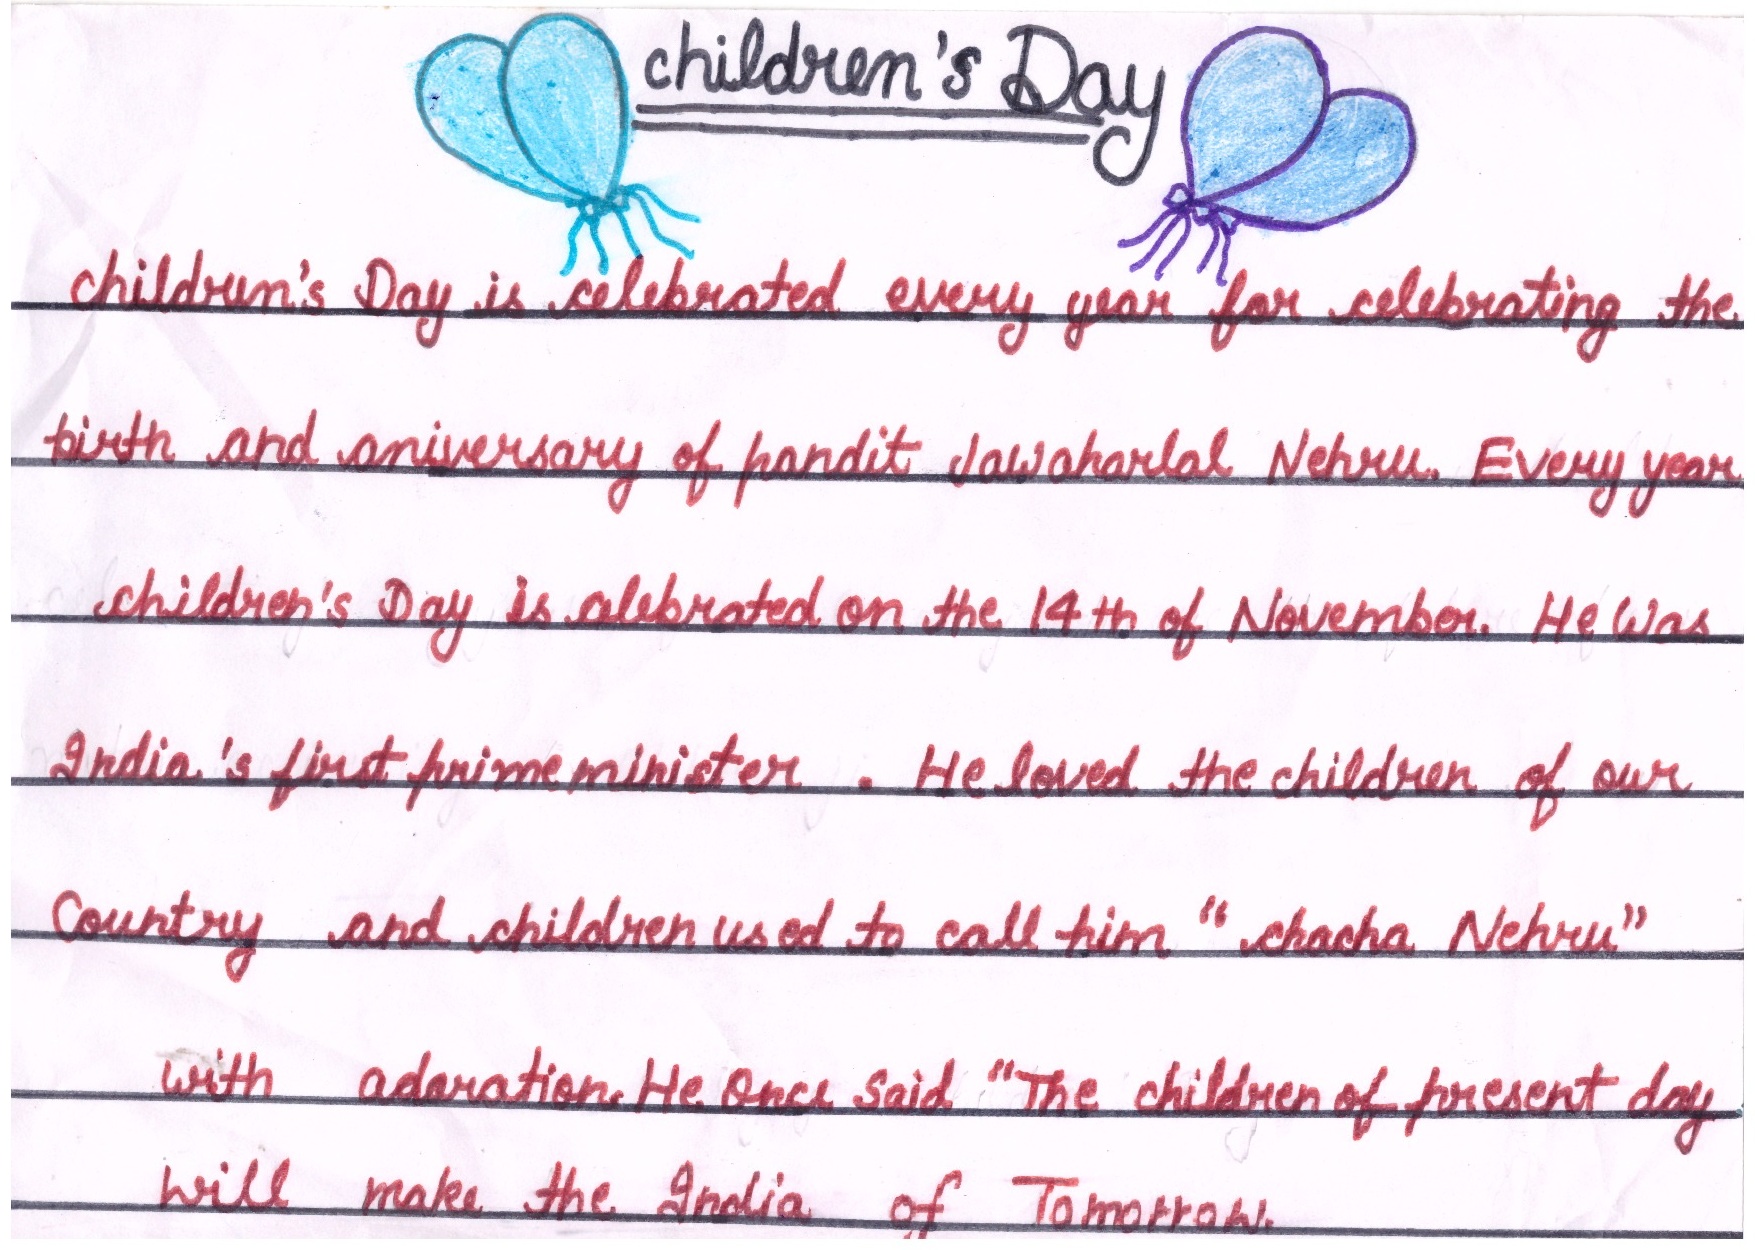 children's Day
children's Day is celebrated every year for celebrating the
birth and aniversary of pandit Jawaharlal Nehru. Every year
children's Day is celebrated on the 14th of November. He Was
India's first prime minister . He loved the children of our
Country and children used to call him "chacha Nehru"
with adoration. He Once said "The children of present day
will make the India of Tomorrow.